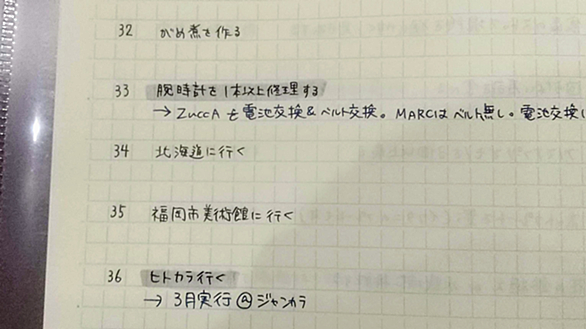 32 がめ煮を作る
33 腕時計を1本以上修理する
→ ZuccAも電池交換&ベルト交換。MARCはベルト無し。電池交換し
34 北海道に行く
35 福岡市美術館に行く
36 ヒトカラ行く
→ 3月実行@ジャンカラ